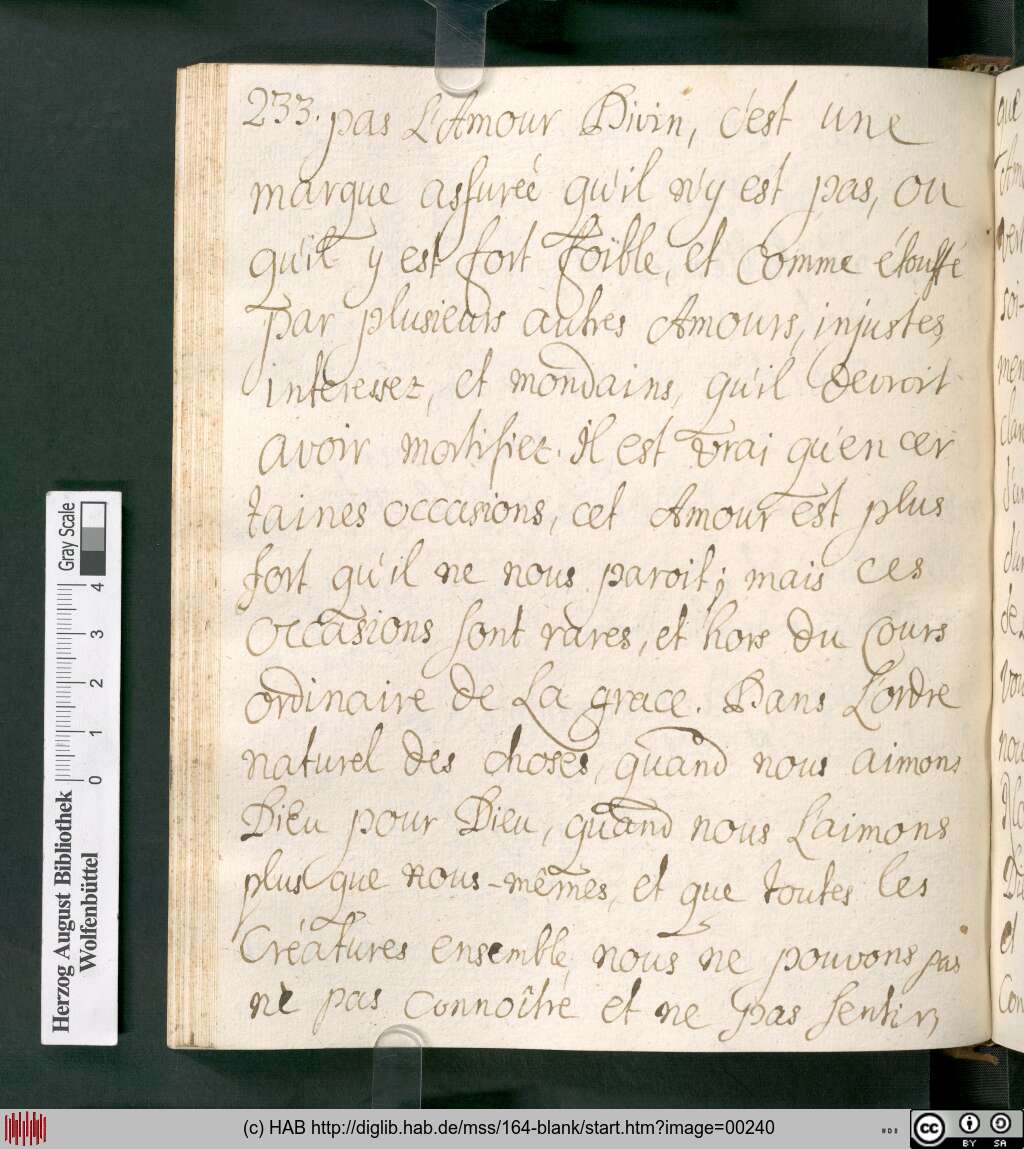 233. pas L'Amour Divin, c'est une
marque assureé qu'il n'y est pas, ou
qu'il y est fort foible, et comme étouffé
par plusieurs autres Amours, injustes,
interessez, et mondains, qu'il devroit
avoir mortifiez. il est vrai qu'en cer
taines occasions, cet Amour est plus
fort qu'il ne nous paroit; mais ces
occasions sont rares, et hors du cours
ordinaire de La grace. Dans L'ordre
naturel des choses, quand nous aimons
Dieu pour Dieu, quand nous L'aimons
plus que nous-mêmes, et que toutes les
Créatures ensemble, nous ne pouvons pas
ne pas connoître et ne pas sentir,
Herzog August Bibliothek
Wolfenbüttel
Gray Scale
0 1 2 3 4
(c) HAB http://diglib.hab.de/mss/164-blank/start.htm?image=00240
cc BY SA